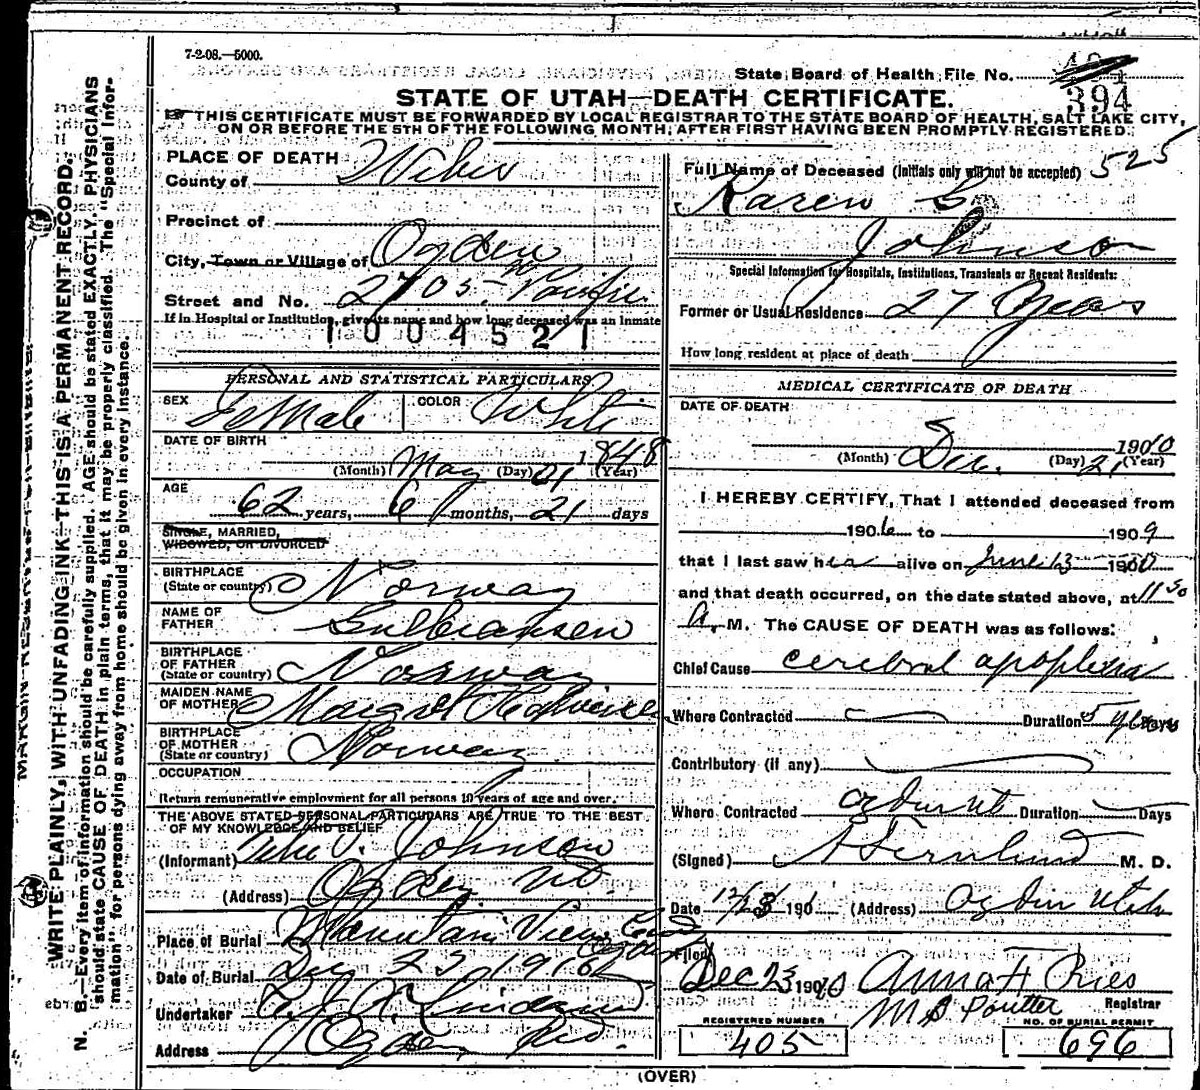 7-2-08.—5000.
State Board of Health File No.
394
STATE OF UTAH—DEATH CERTIFICATE.
THIS CERTIFICATE MUST BE FORWARDED BY LOCAL REGISTRAR TO THE STATE BOARD OF HEALTH, SALT LAKE CITY,
ON OR BEFORE THE 5TH OF THE FOLLOWING MONTH, AFTER FIRST HAVING BEEN PROMPTLY REGISTERED.
PLACE OF DEATH
County of Weber
Precinct of
City, Town or Village of Ogden
Street and No. 2705 Pacific
If in Hospital or Institution, give its name and how long deceased was an inmate
1004521
PERSONAL AND STATISTICAL PARTICULARS.
SEX Female COLOR White
DATE OF BIRTH
(Month) May (Day) 21 1848 (Year)
AGE
62 years, 6 months, 21 days
SINGLE, MARRIED,
WIDOWED, OR DIVORCED
BIRTHPLACE
(State or country) Norway
NAME OF
FATHER Gulbransen
BIRTHPLACE
OF FATHER
(State or country) Norway
MAIDEN NAME
OF MOTHER Margret
BIRTHPLACE
OF MOTHER
(State or country) Norway
OCCUPATION
Return remunerative employment for all persons 10 years of age and over.
THE ABOVE STATED PERSONAL PARTICULARS ARE TRUE TO THE BEST
OF MY KNOWLEDGE AND BELIEF
(Informant) Johnson
(Address) Ogden Ut.
Place of Burial Mountain View Cem Ogden
Date of Burial Dec 23 1910
Undertaker
Address Ogden
525
Full Name of Deceased (Initials only will not be accepted)
Karen G.
Johnson
Special Information for Hospitals, Institutions, Transients or Recent Residents:
Former or Usual Residence 27 Years
How long resident at place of death
MEDICAL CERTIFICATE OF DEATH
DATE OF DEATH
(Month) Dec. (Day) 21 1910 (Year)
I HEREBY CERTIFY, That I attended deceased from
1906 to 1909
that I last saw her alive on June 13 1910
and that death occurred, on the date stated above, at 11 30
A. M. The CAUSE OF DEATH was as follows:
Chief Cause cerebral apoplexia
Where Contracted Duration 5 Days
Contributory (if any)
Where Contracted Ogden ut Duration Days
(Signed) A Fernlund M. D.
Date 12/23 191 (Address) Ogden Utah
Filed
Dec 23 1910 Anna F Ries
M B Poutter Registrar
REGISTERED NUMBER
405
NO. OF BURIAL PERMIT
696
(OVER)
MARGIN RESERVED FOR BINDING
WRITE PLAINLY, WITH UNFADING INK—THIS IS A PERMANENT RECORD.
N. B.—Every item of information should be carefully supplied. AGE should be stated EXACTLY. PHYSICIANS
should state CAUSE OF DEATH in plain terms, that it may be properly classified. The "Special Infor-
mation" for persons dying away from home should be given in every instance.